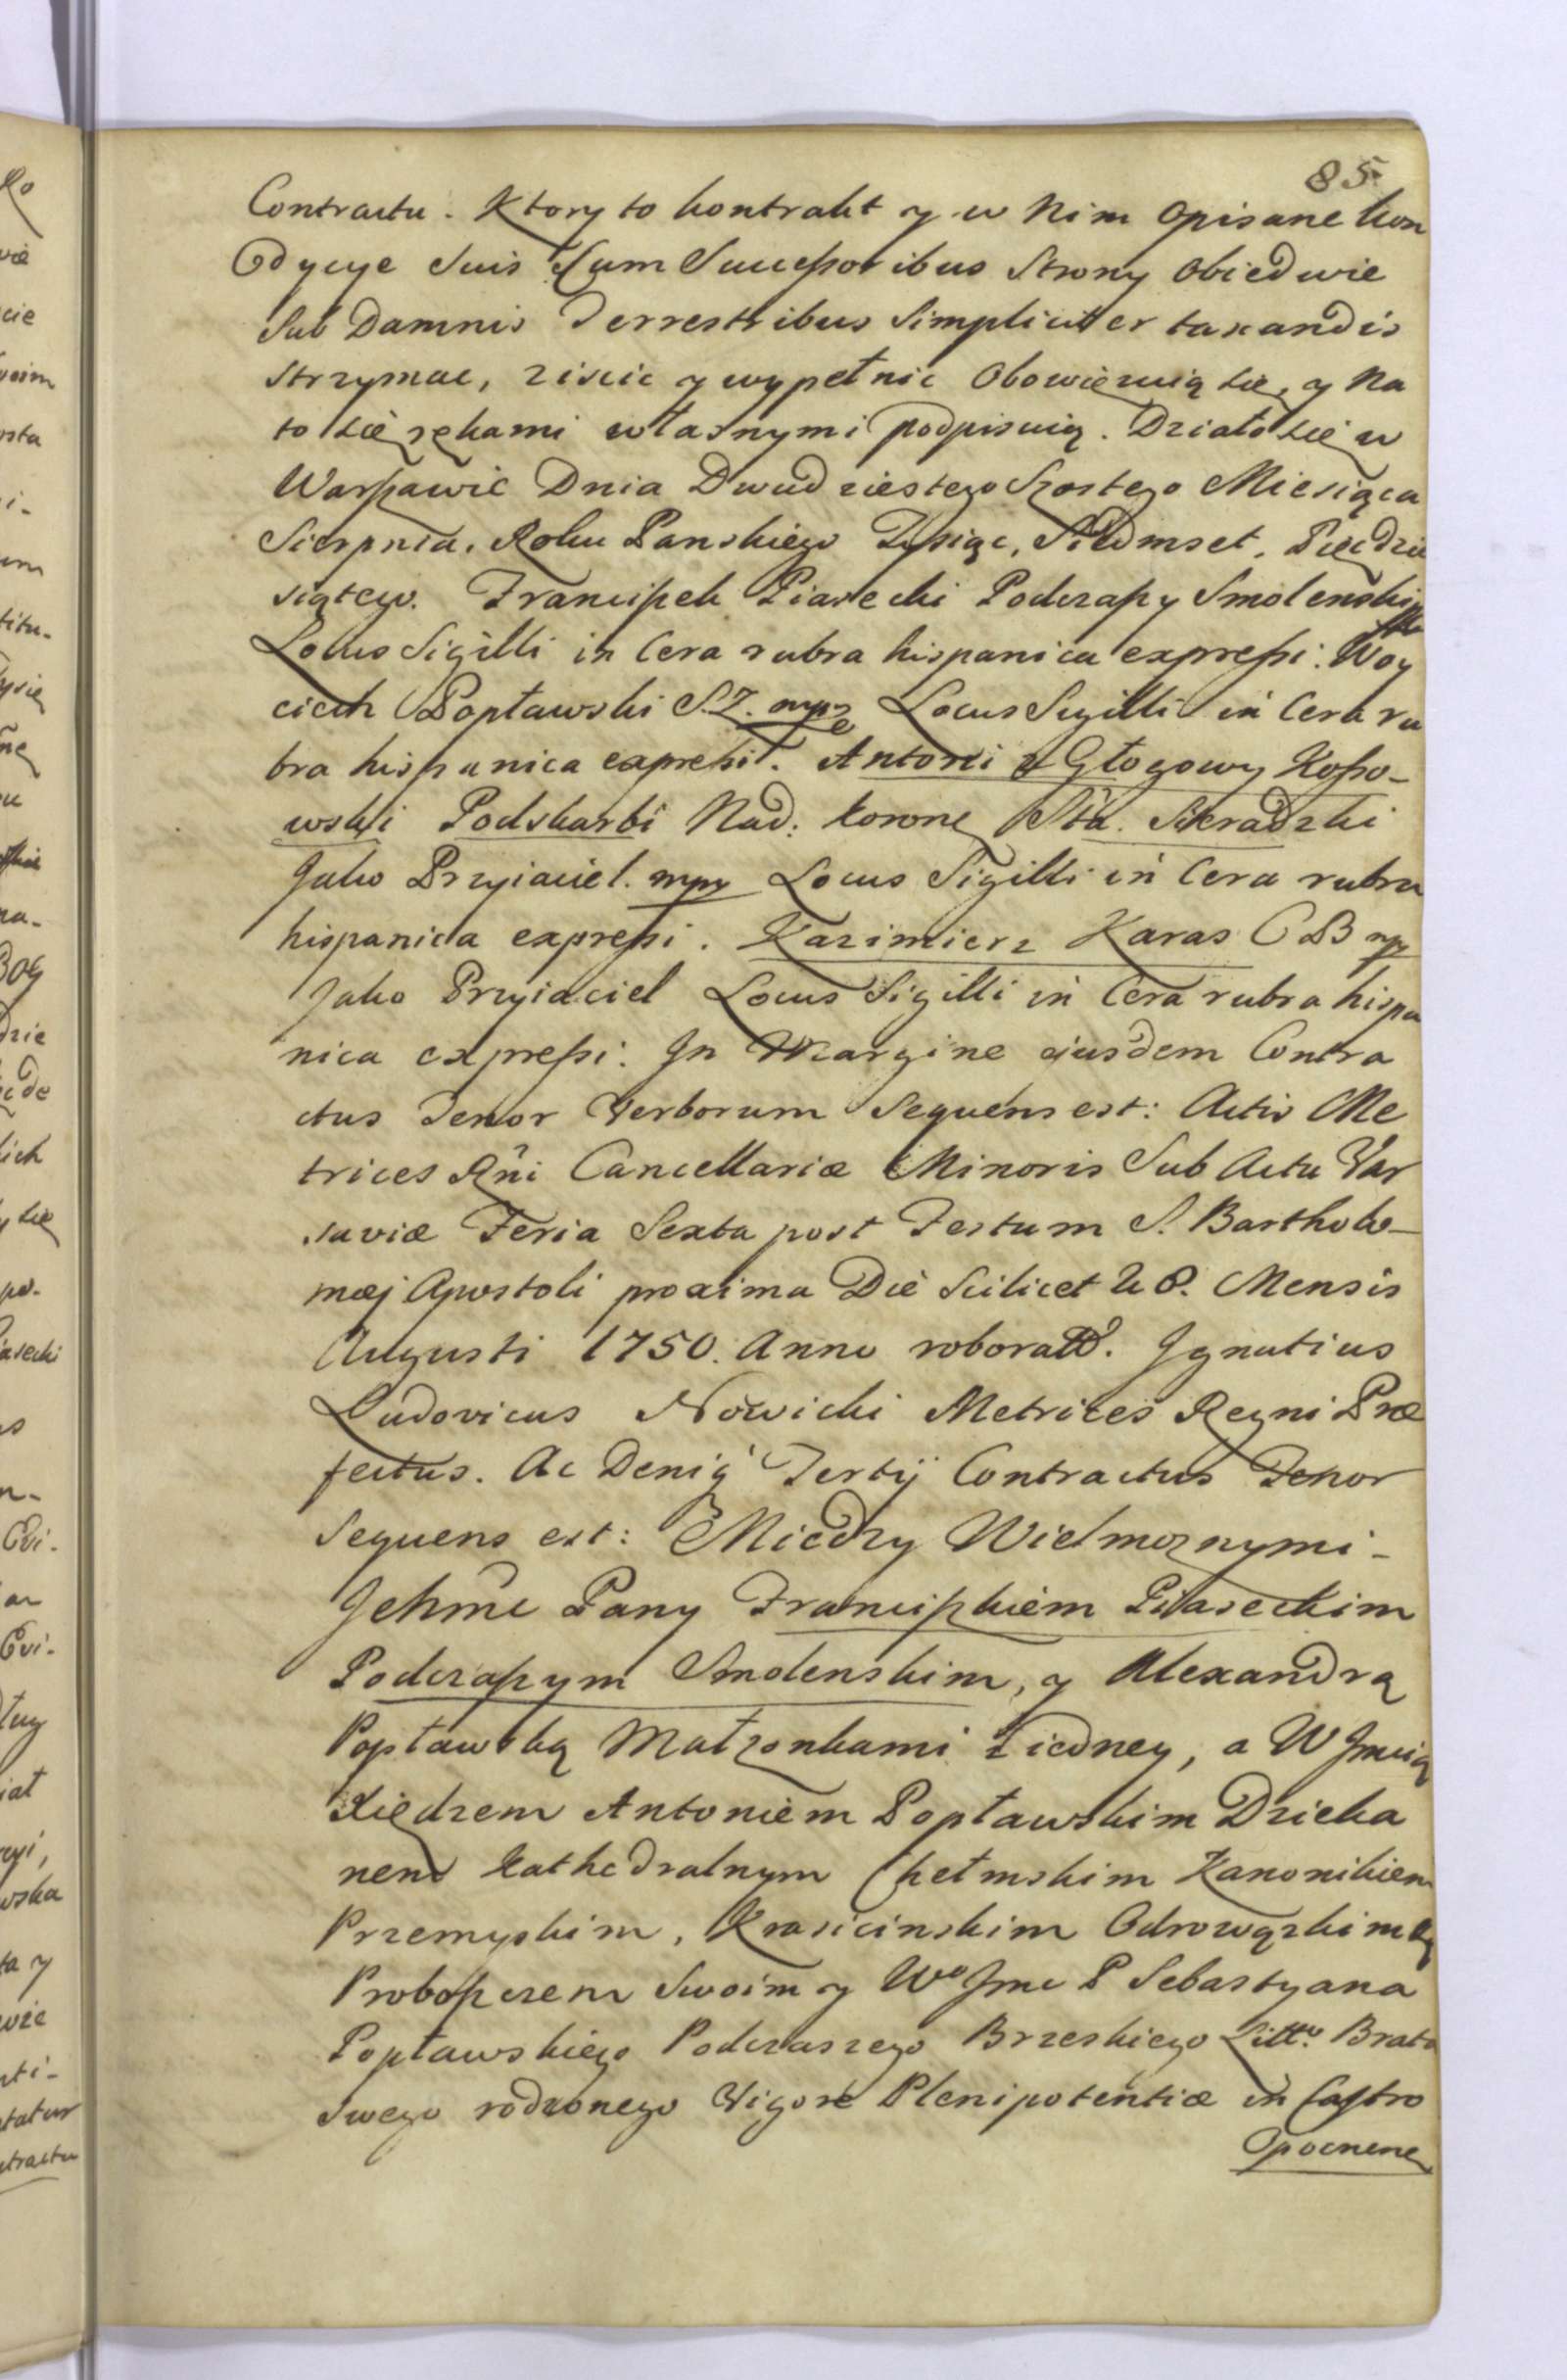 85
Contractu. Ktory to kontrakt y w Nim Opisane kon
dycye Suis Cum Successoribus Strony Obiedwie
Sub Damnis Terrestribus Simpliciter taxandis
strzymac, ziscic y wypełnic Obowięzuią się, y Na
to się rękami własnymi podpisuią. Działo się w
Warszawie Dnia Dwudziestego Szostego Miesiąca
Sierpnia, Roku Panskiego Tysiąc, Siedmset, Pięcdzie
siątego. Franciszek Piasecki Podczaszy Smolenski
Locus Sigilli in Cera rubra hispanica expressi. Woy
ciech Popławski S.Z. mpe Locus Sigilli in Cera ru
bra hispanica expressi. Antoni z Głogowy Kosso-
wski Podskarbi Nad: koronę Sta. Sieradzki
Jako Przyiaciel. mpr Locus Sigilli in Cera rubra
hispanica expressi. Kazimierz Karas C B mp
Jako Przyiaciel Locus Sigilli in Cera rubra hispa
nica expressi. In Margine ejusdem Contra
ctus Tenor Verborum Sequens est: Actis Me
trices Rñi Cancellariæ Minoris Sub Actu Var
saviæ Feria Sexta post Festum S. Bartholo-
mæj Apostoli proxima Die Scilicet 28. Mensis
Augusti 1750. Anno roborat. Ignatius
Ludovicus Nowicki Metrices Regni Præ
fectus. Ac Deniq' Tertÿ Contractus Tenor
Sequens est: Miedzy Wielmoznymi-
Jchmc Pany Franciszkiem Piaseckim
Podczaszym Smolenskim, y Alexandrą
Popławską Małzonkami z iedney, a W Jmcią
Xiędzem Antoniem Popławskim Dzieka
nem kathedralnym Chełmskim Kanonikiem
Przemyskim, Krasicinskim Odrowązkim
Proboszczem Swoim y Wo Jmc P Sebastyana
Popławskiego Podczaszego Brzeskiego Litto. Brata
Swego rodzonego Vigore Plenipotentiæ in Castro
Opocnene